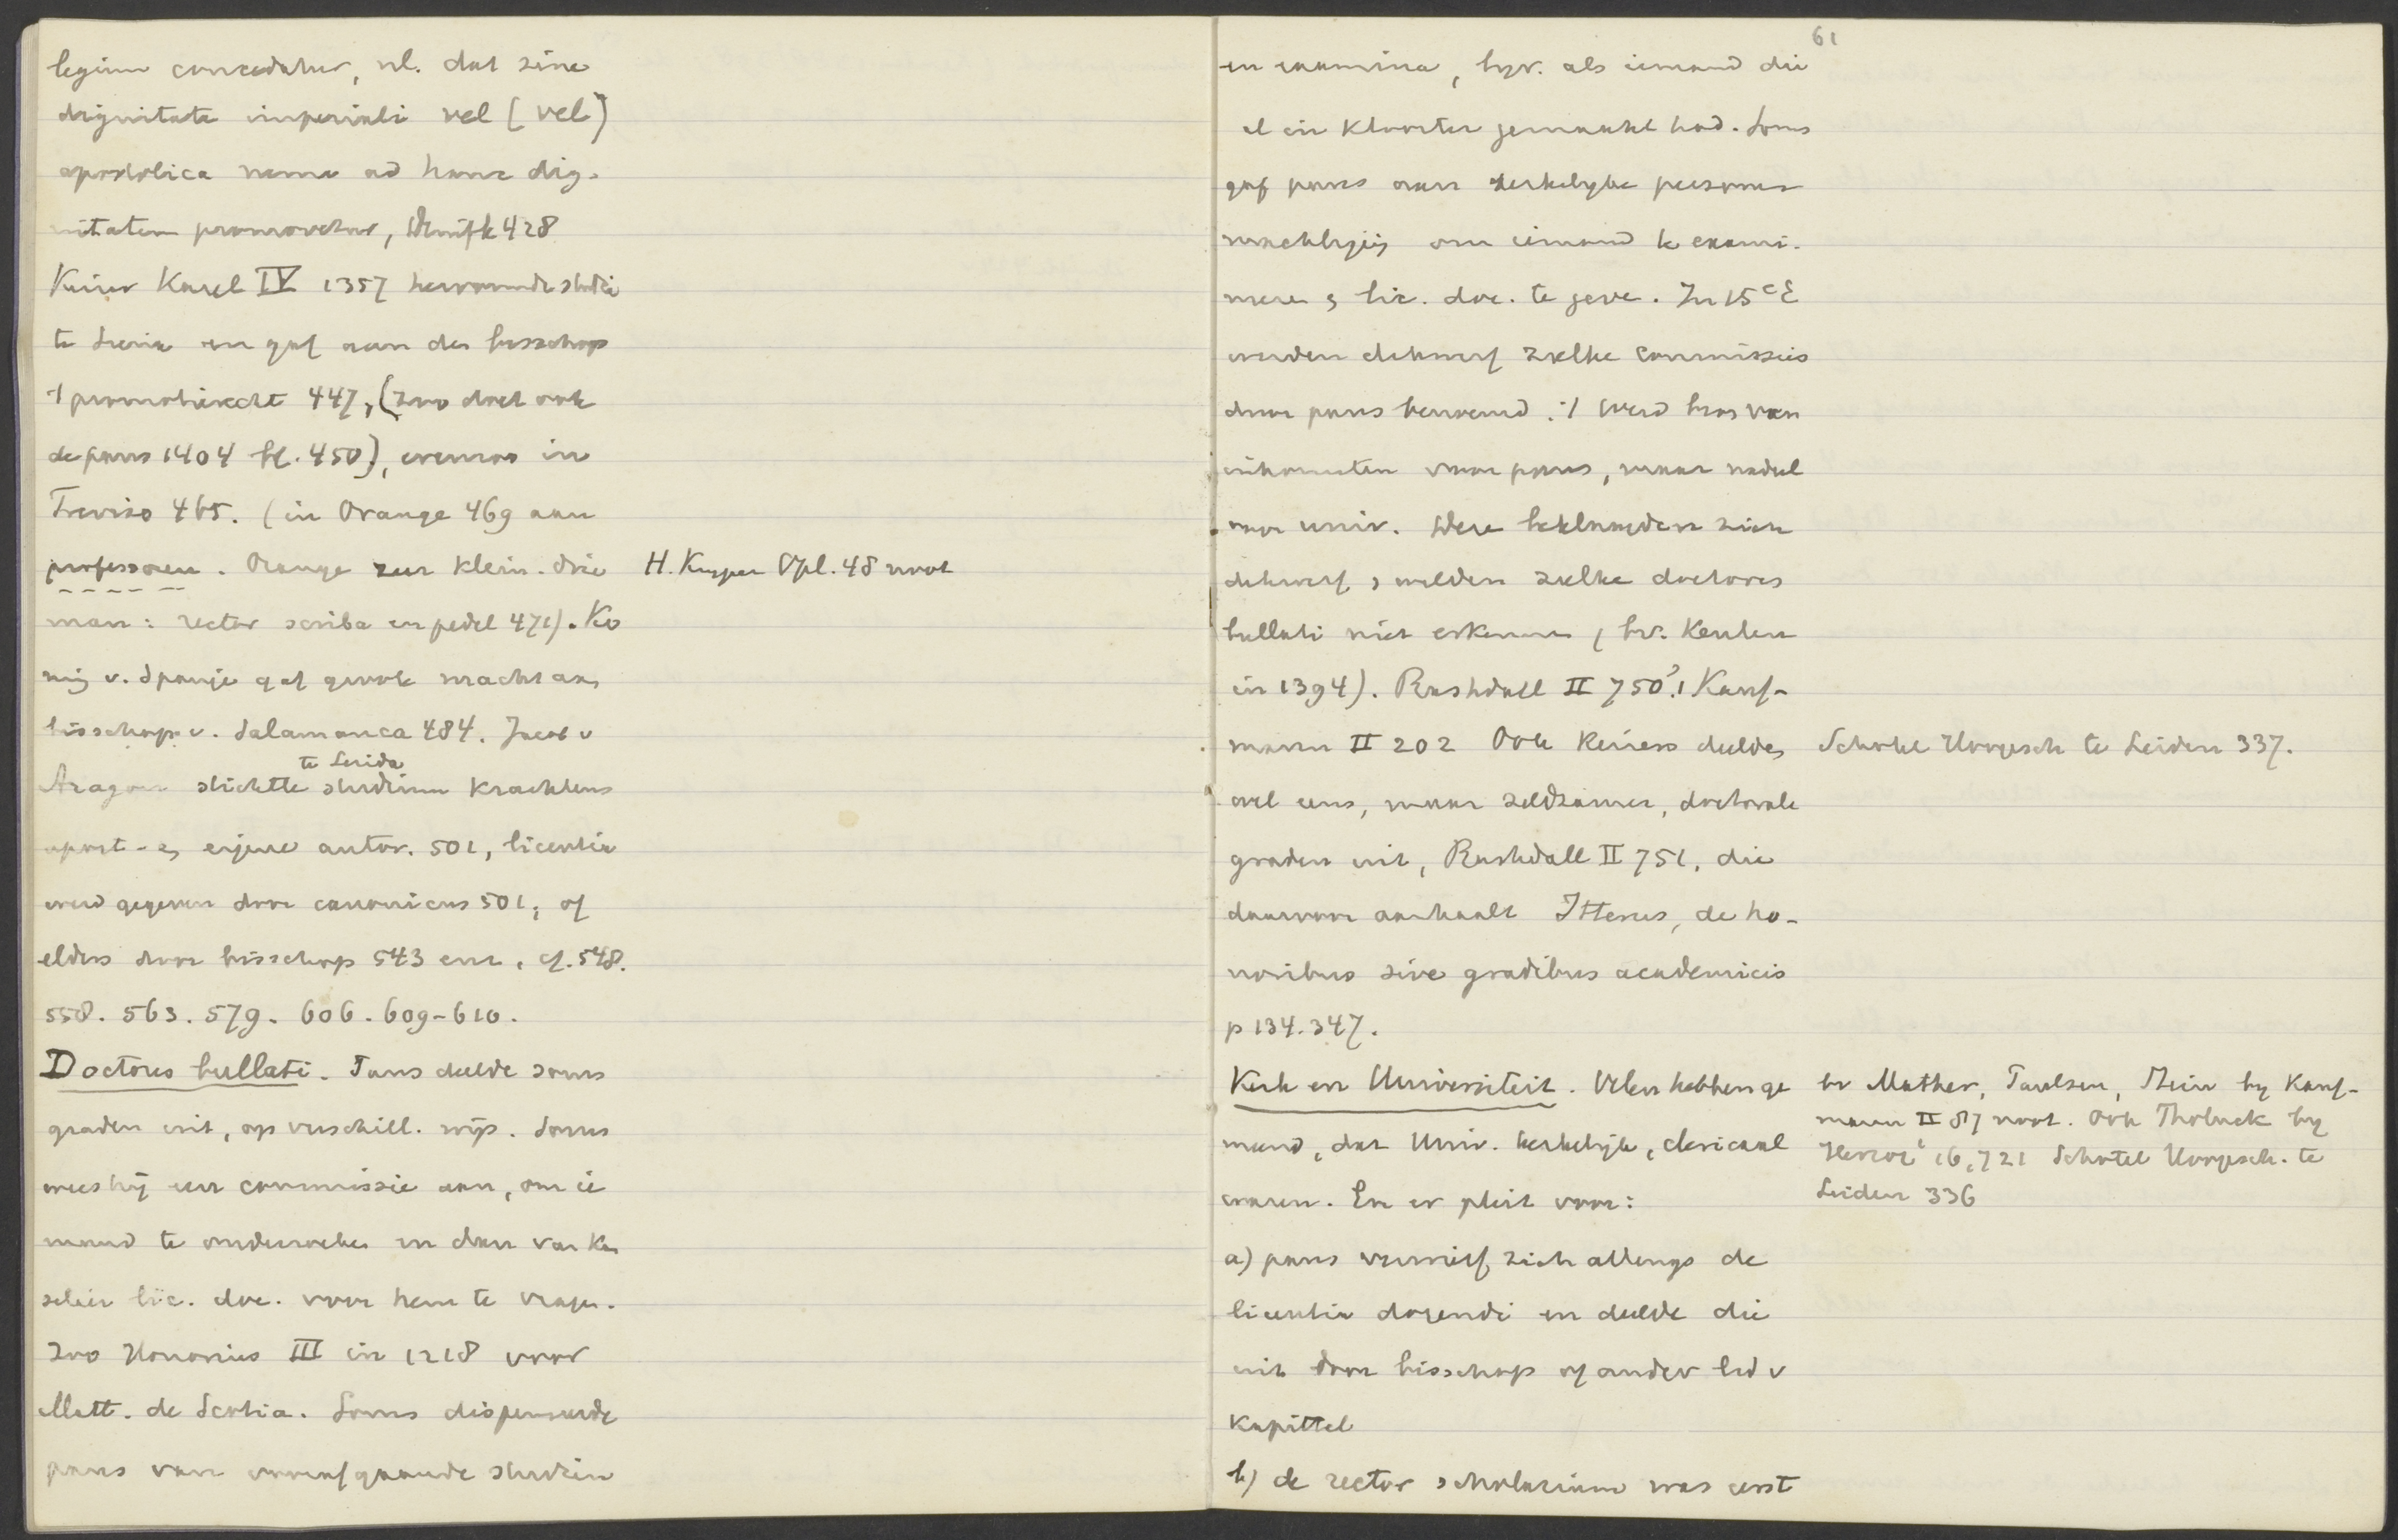 legium concedatur, nl. dat sine
dignitate imperiali vel [vel]
apostolica nemo ad hanc dig-
nitatem promovetur, Denifle 428
Keizer Karel IV 1357 hervormde studie
te Siena en gaf aan den bisschop
't promotierecht 447, (zoo doet ook
de paus 1404 bl. 450), evenzoo in
Treviso 465. (in Orange 469 aan
professoren. Orange zeer klein. drie
man: rector scriba en pedel 471). Ko
ning v. Spanje gaf gewone macht aan
bisschop v. Salamanca 484. Jacob v
te Lerida
Aragon stichtte studium krachtens
apost- en eigene autor. 501, licentia
werd gegeven door canonicus 501, of
elders door bisschop 543 enz. cf. 548.
558. 563. 579. 606. 609-610.
H. Kuyper Opl. 48 noot
Doctores bullati. Paus deelde soms
graden uit, op verschill. wijs. Soms
wees hij een commissie aan, om ie
mand te onderzoeken en dan van kan
selier lic. doc. voor hem te vragen.
Zoo Honorius III in 1218 voor
Matt. de Scotia. Soms dispenseerde
paus van voorafgaande studien
61
en examina, byv. als iemand die
al in klooster gemaakt had. Soms
gaf paus aan kerkelijke personen
machtiging om iemand te exami-
neren en lic. doc. te geven. In 15e E
werden dikwerf zulke commissies
door paus benoemd. 't Werd bron van
inkomsten voor paus, maar nadeel
voor univ. Deze beklaagden zich
dikwerf en wilden zulke doctores
bullati niet erkennen (bv. Keulen
in 1394). Rashdall II 750? 1 Kauf-
mann II 202 Ook Keizers deelden
wel eens, maar zeldzamer, doctorale
graden uit, Rashdall II 751, die
daarvoor aanhaalt Itterus, de ho-
noribus sive gradibus academicis
p 134. 347.
Schotel Hoogesch te Leiden 337.
Kerk en Universiteit. Velen hebben ge
meend, dat Univ. kerkelijk, clericaal
waren. En er pleit voor:
a) paus verwierf zich allengs de
licentia docendi en deelde die
uit door bisschop of ander lid v
kapittel
b) de rector scholarium was eerst
bv Mather, Paulsen, Stein by Kauf-
mann II 87 noot. Ook Tholuck by
Herzog 16, 721 Schotel Hoogesch. te
Leiden 336